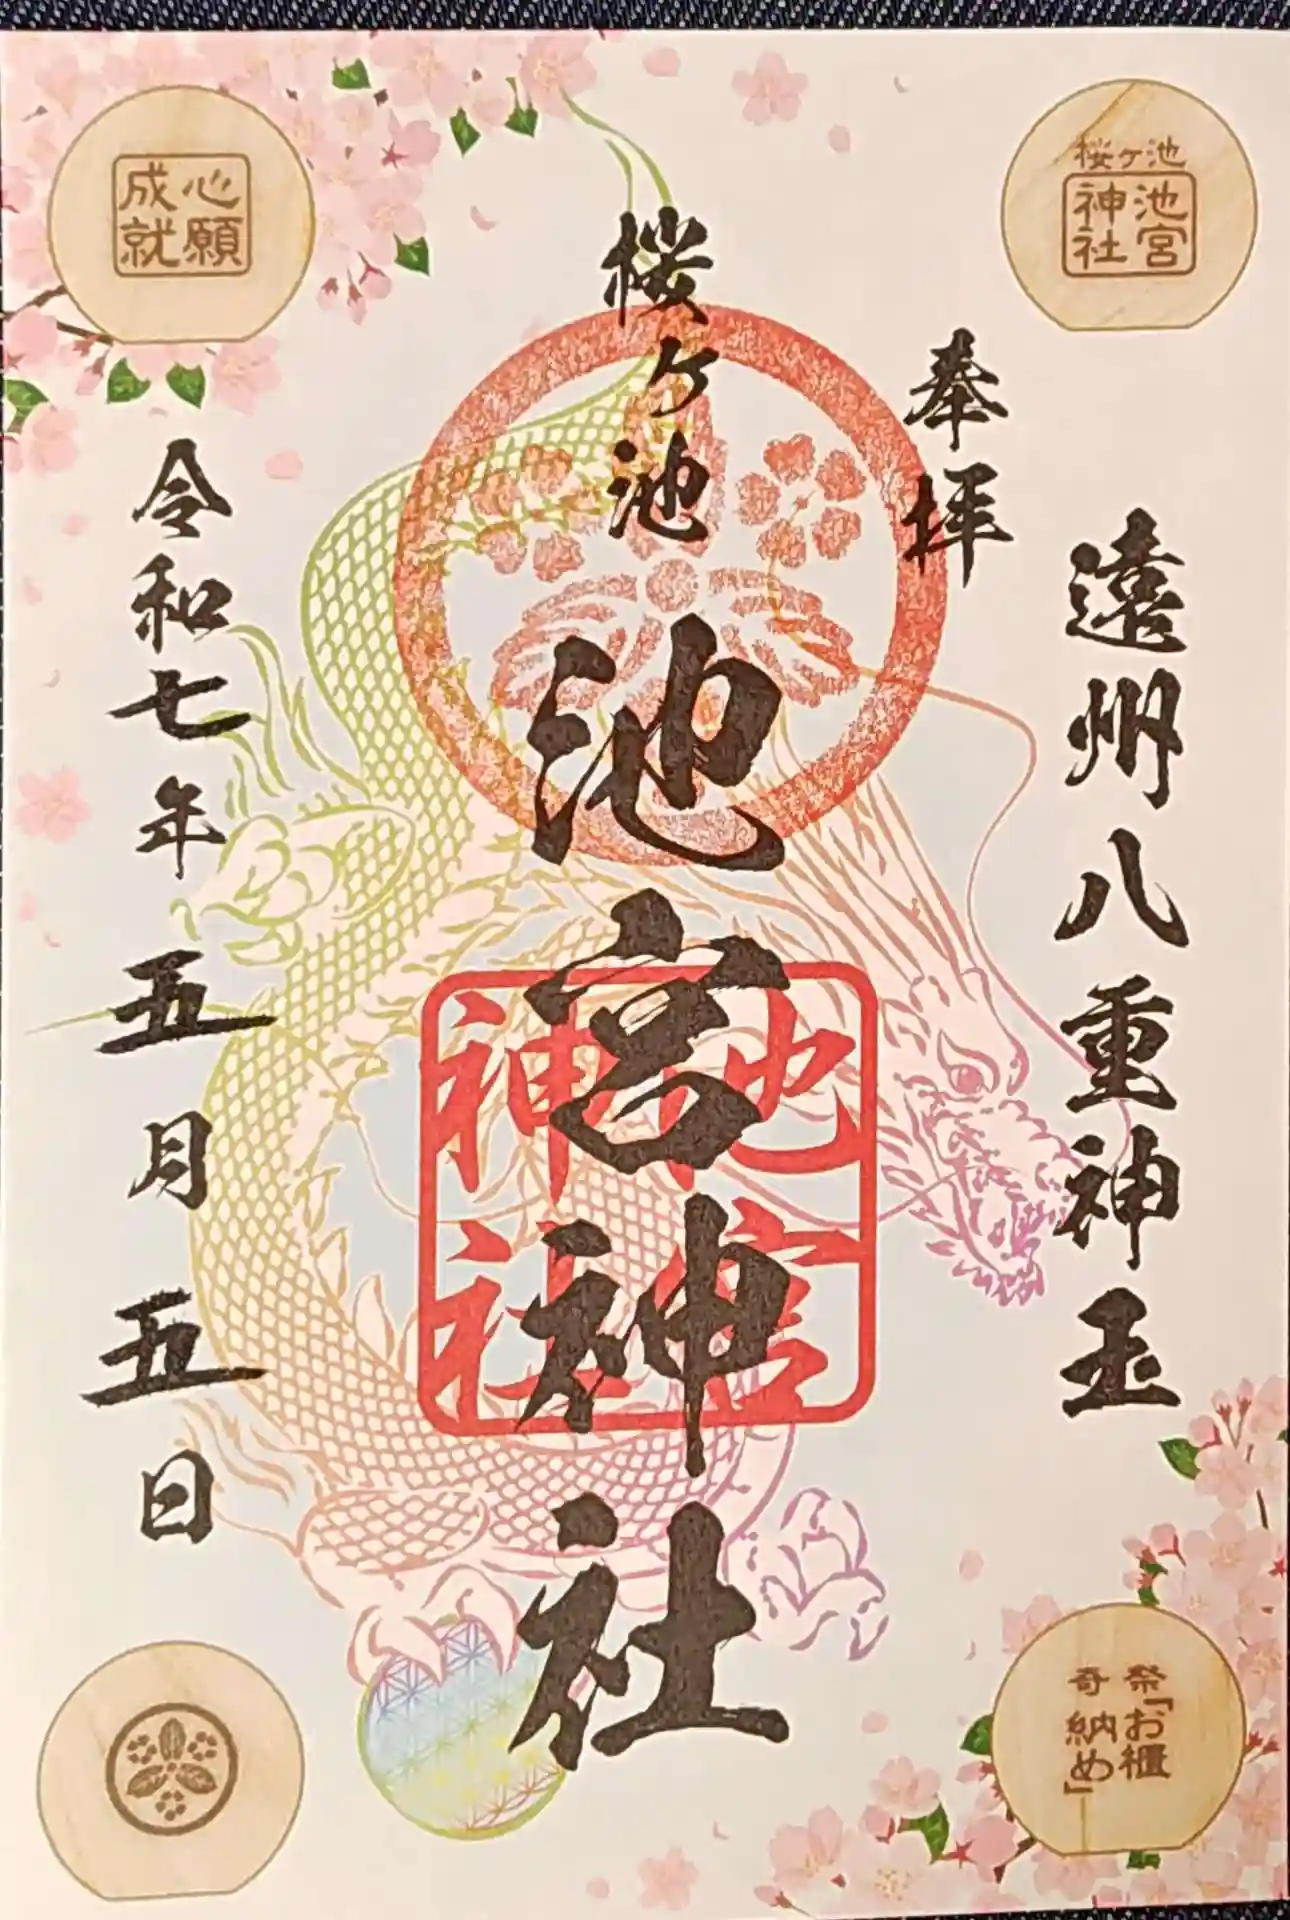 遠州八重神玉
奉拝
桜ヶ池
池宮神社
令和七年五月五日
池宮
神社
桜ヶ池
池宮
神社
心願
成就
奇祭
「お櫃
納め」